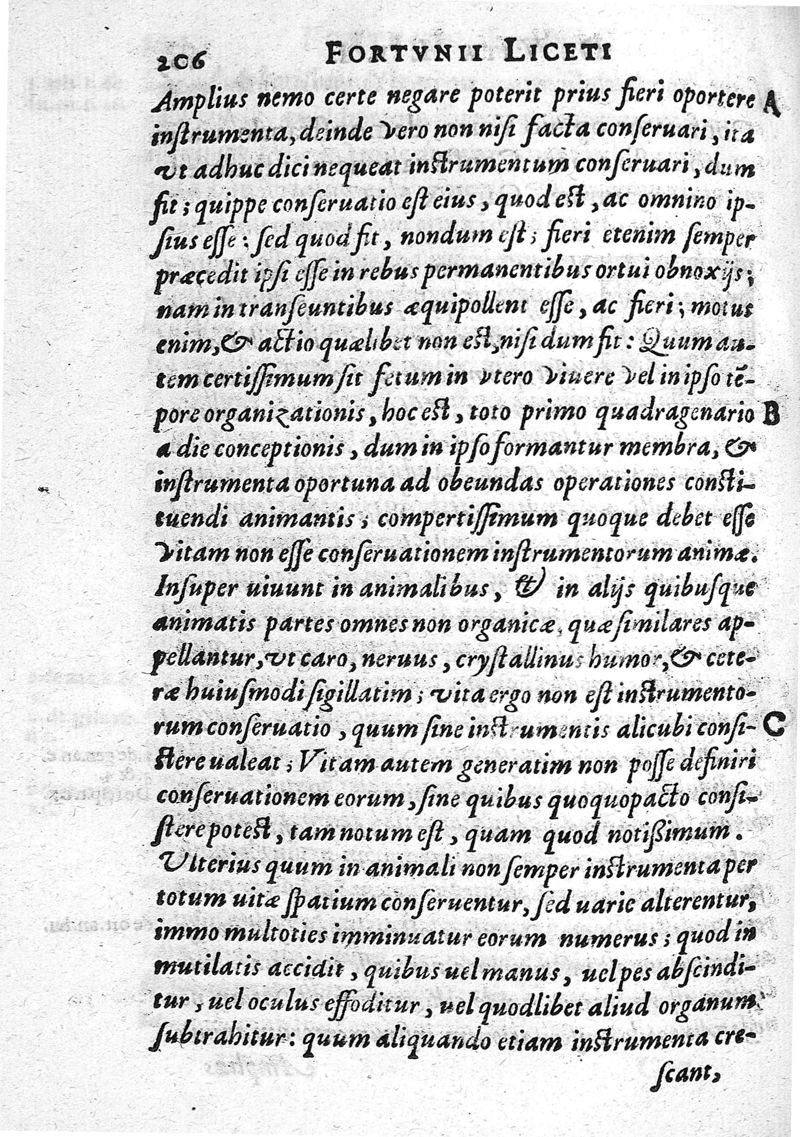 206 FORTVNII LICETI
Amplius nemo certe negare poterit prius fieri oportere A
instrumenta, deinde vero non nisi facta conseruari, ita
vt adhuc dici nequeat instrumentum conseruari, dum
fit; quippe conseruatio est eius, quod est, ac omnino ip-
sius esse: sed quod fit, nondum est; fieri etenim semper
præcedit ipsi esse in rebus permanentibus ortui obnoxijs;
nam in transeuntibus æquipollent esse, ac fieri; motus
enim, & actio quælibet non est, nisi dum fit: Quum au-
tem certissimum sit fetum in vtero viuere vel in ipso tē-
pore organizationis, hoc est, toto primo quadragenario B
a die conceptionis, dum in ipso formantur membra, &
instrumenta oportuna ad obeundas operationes consti-
tuendi animantis; compertissimum quoque debet esse
vitam non esse conseruationem instrumentorum animæ.
Insuper uiuunt in animalibus, & in alijs quibusque
animatis partes omnes non organicæ, quæ similares ap-
pellantur, vt caro, neruus, crystallinus humor, & cete-
ræ huiusmodi sigillatim; vita ergo non est instrumento-
rum conseruatio, quum sine instrumentis alicubi consi- C
stere ualeat; Vitam autem generatim non posse definiri
conseruationem eorum, sine quibus quoquopacto consi-
stere potest, tam notum est, quam quod notißimum.
Vlterius quum in animali non semper instrumenta per
totum uitæ spatium conseruentur, sed uarie alterentur,
immo multoties imminuatur eorum numerus; quod in
mutilatis accidit, quibus uel manus, uel pes abscindi-
tur, uel oculus effoditur, uel quodlibet aliud organum
subtrahitur: quum aliquando etiam instrumenta cre-
scant,